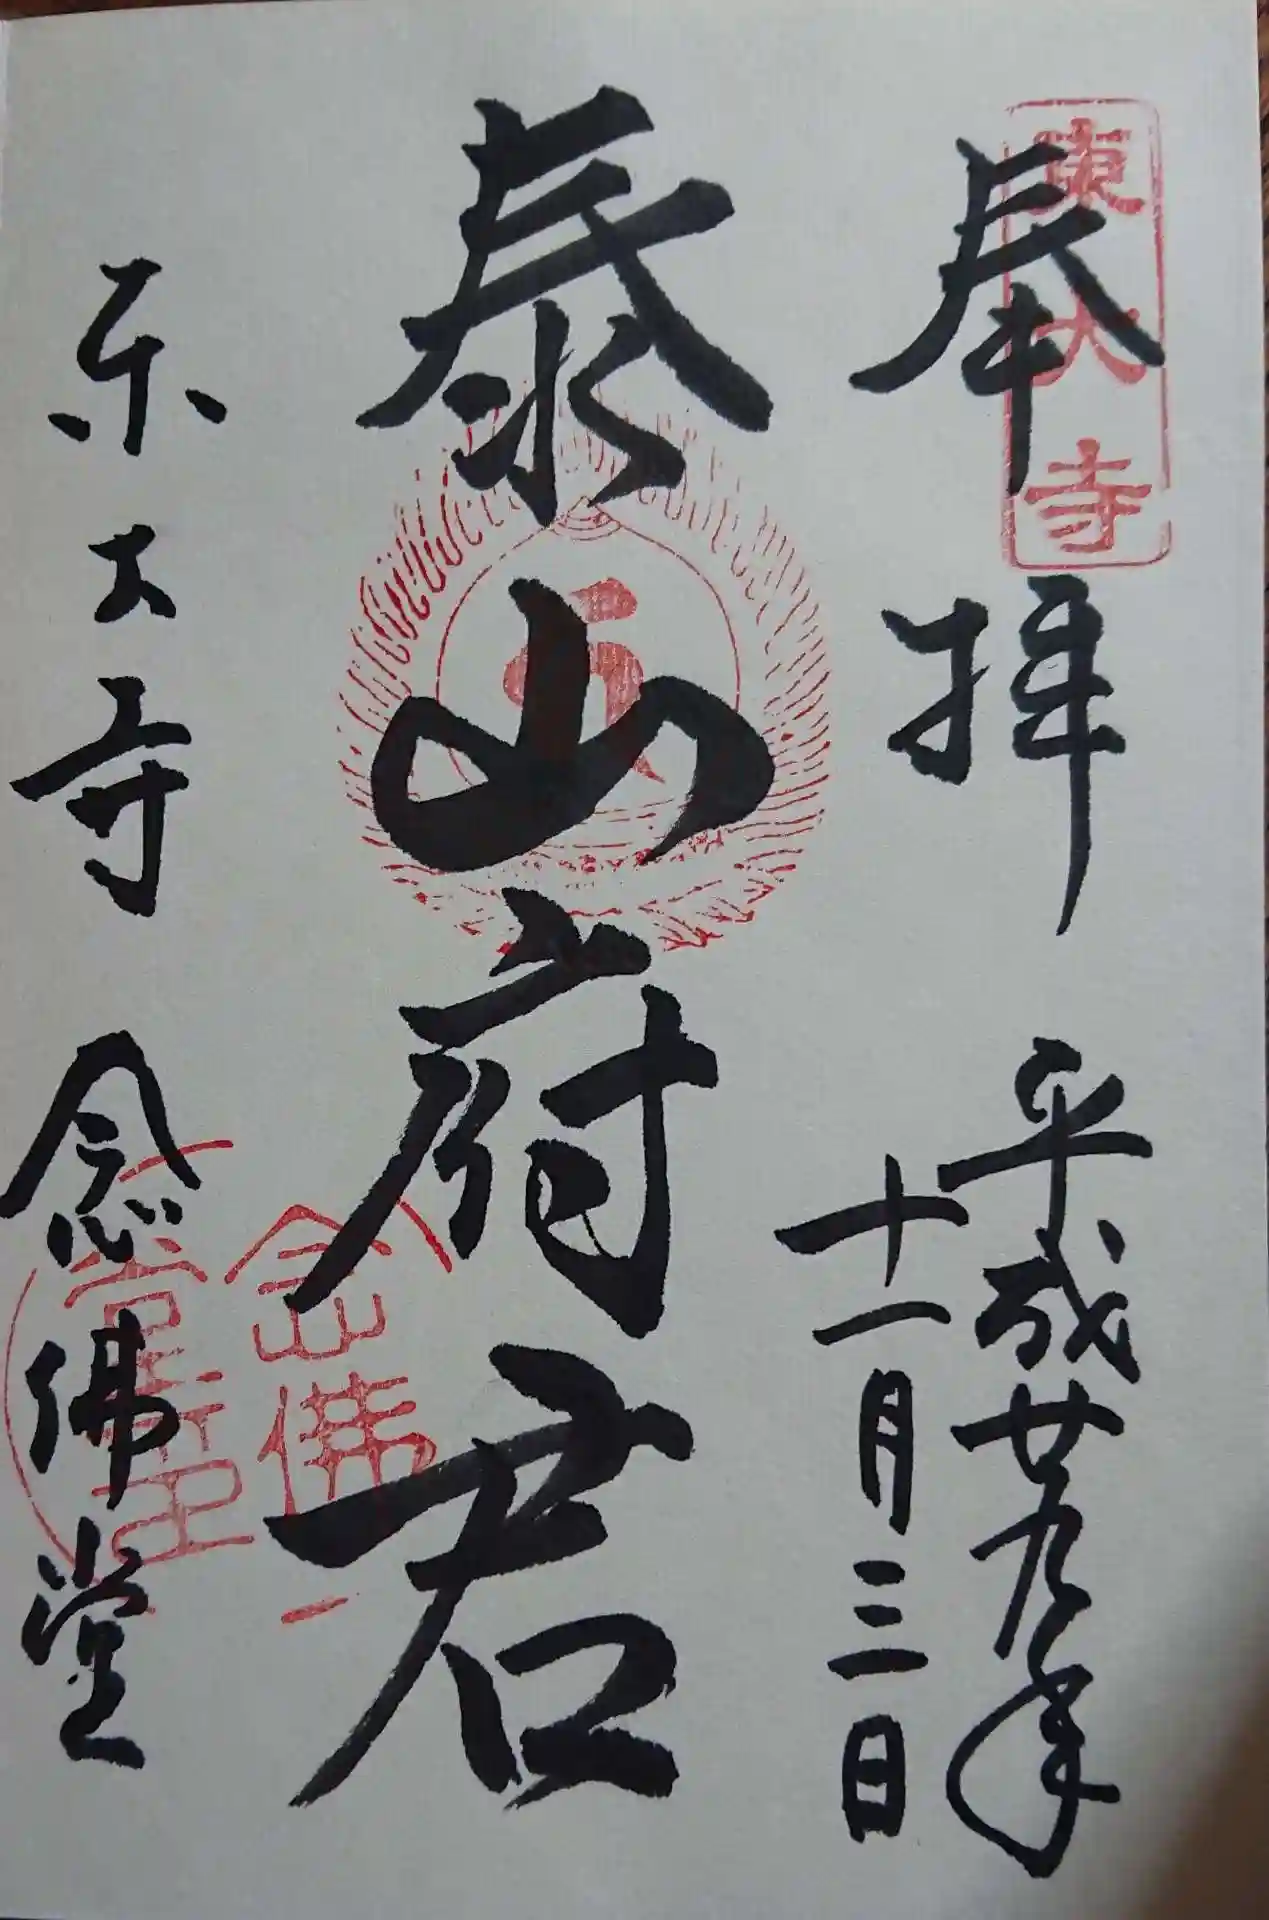 東大寺
奉拝
平成廿九年
十一月三日
泰山府君
東大寺 念佛堂
念佛
堂印